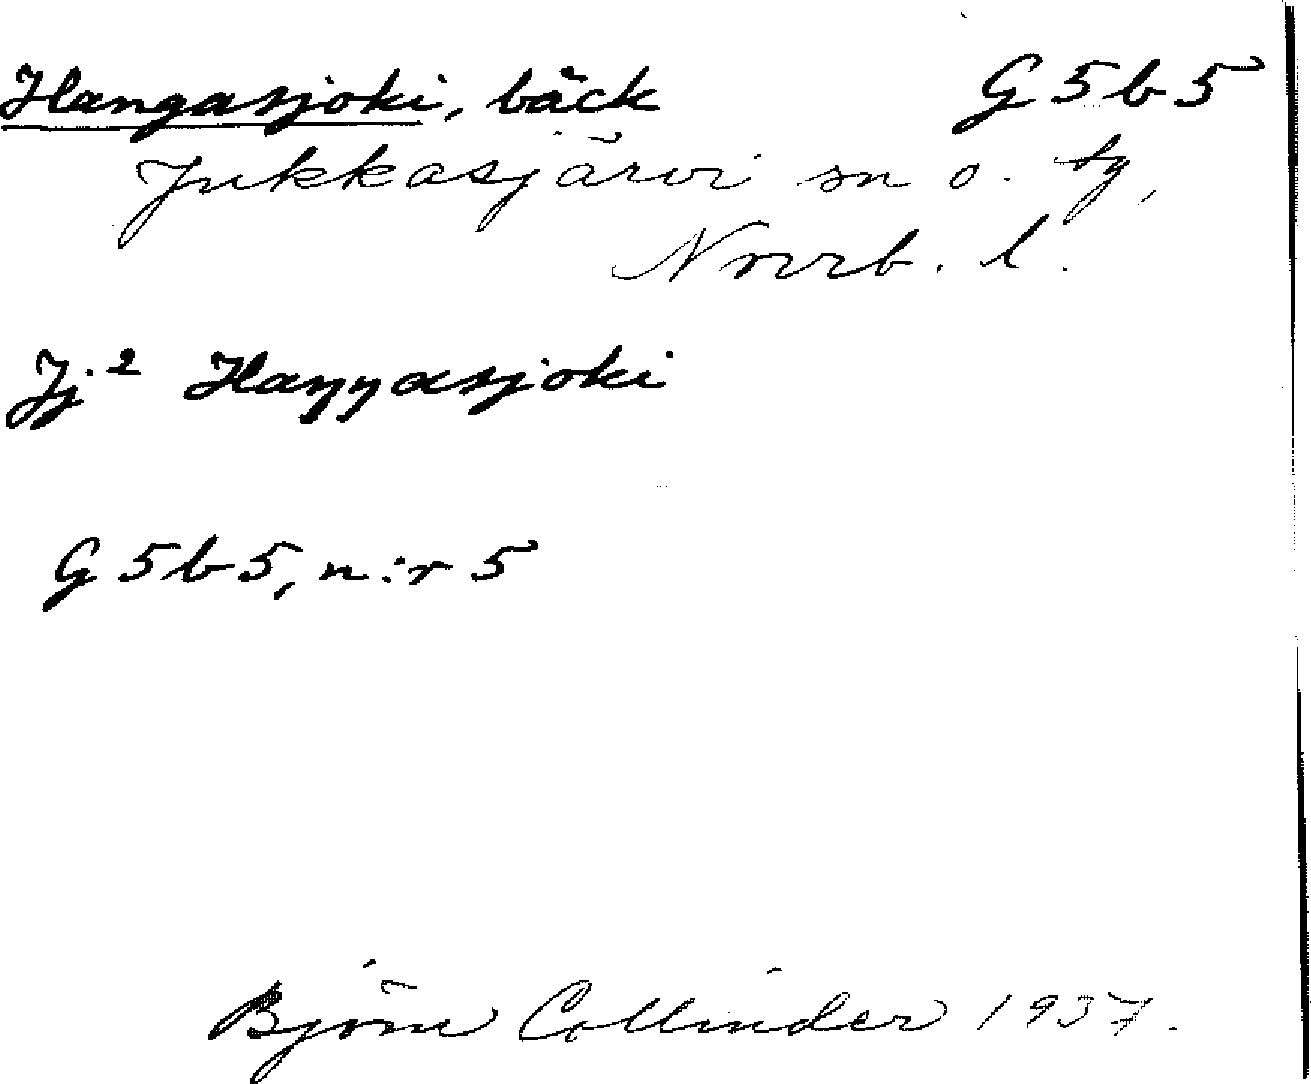 Hangasjoki, bäck G5b5
Jukkasjärvi sn o. tg,
Norrb. l.
Jj.² Haŋŋasjoki
G5b5, n:r 5
Björn Collinder 1937.